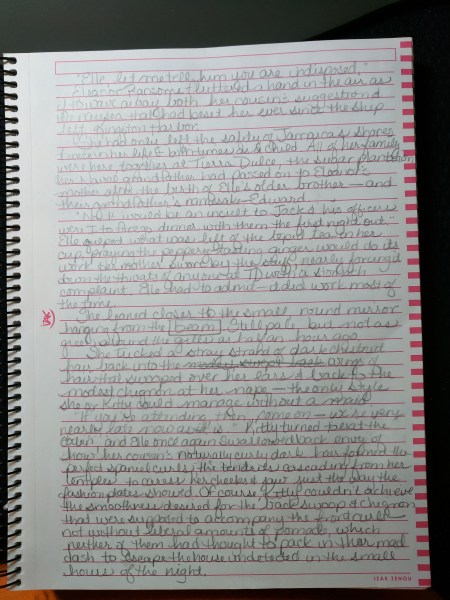 "Elle, let me tell him you are indisposed."
Eleanor Ransome fluttered a hand in the air as
if to wave away both her cousin's suggestion &
the nausea that had beset her ever since the ship
left Kingston Harbor.
She had only left the safety of Jamaica's shores
in her life both times as a child. All of her family
were here at Tierra Dulce, the sugar plantation
her grandfather had passed on to
mother after the birth of Elle's older brother—and
their grandfather's namesake—Edward.
"No. It would be an insult to Jack & his officers
were I to forego dinner with them the first night out."
Elle gulped what was left of the tepid tea in her
cup, praying the peppermint and ginger would do its
work
down the throats of anyone at TD with a stomach
complaint. Elle had to admit—it did work most of
the time.
She leaned closer to the small, round mirror
hanging from the beam. Still pale, but not as
green around the gills as half an hour ago.
She tucked a stray strand of dark chestnut
hair back into the wings of
hair that swooped over her ears & back to the
modest chignon at her nape—the only style
she or Kitty could manage without a maid.
"If you're attending, then come on—we're very
nearly late now as it is." Kitty turned to exit the
cabin, and Elle once again swallowed back envy of
how her cousin's naturally curly dark hair formed the
perfect spaniel curls, the tendrils cascading from her
temples to caress her cheeks & jaw just the way the
fashion plates showed. Of course, Kitty couldn't achieve
the smoothness desired for the back swoop & chignon
that were supposed to accompany the front curls
not without liberal amounts of pomade, which
neither of them had thought to pack in their mad
dash to escape the house undetected in the small
hours of the night.
IZAK ZENOU